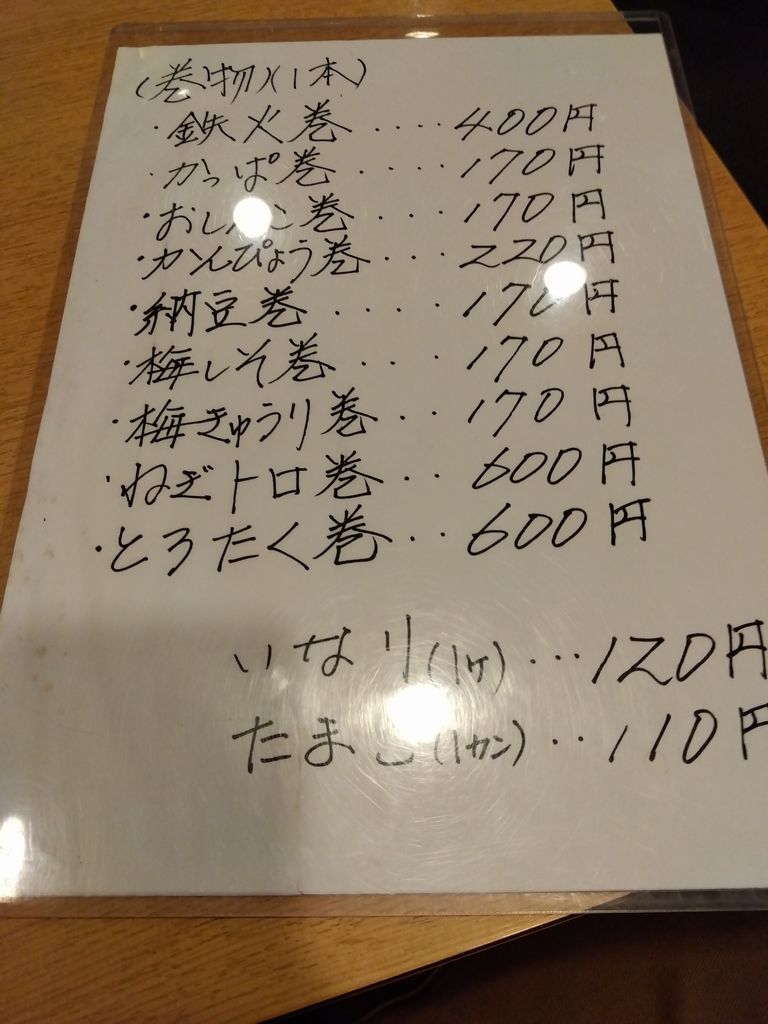 (巻物)(1本)
・鉄火巻....400円
・かっぱ巻....170円
・おしんこ巻...170円
・かんぴょう巻...220円
・納豆巻....170円
・梅しそ巻...170円
・梅きゅうり巻..170円
・ねぎトロ巻..600円
・とろたく巻..600円
いなり(1ヶ)...120円
たまご(1カン)..110円